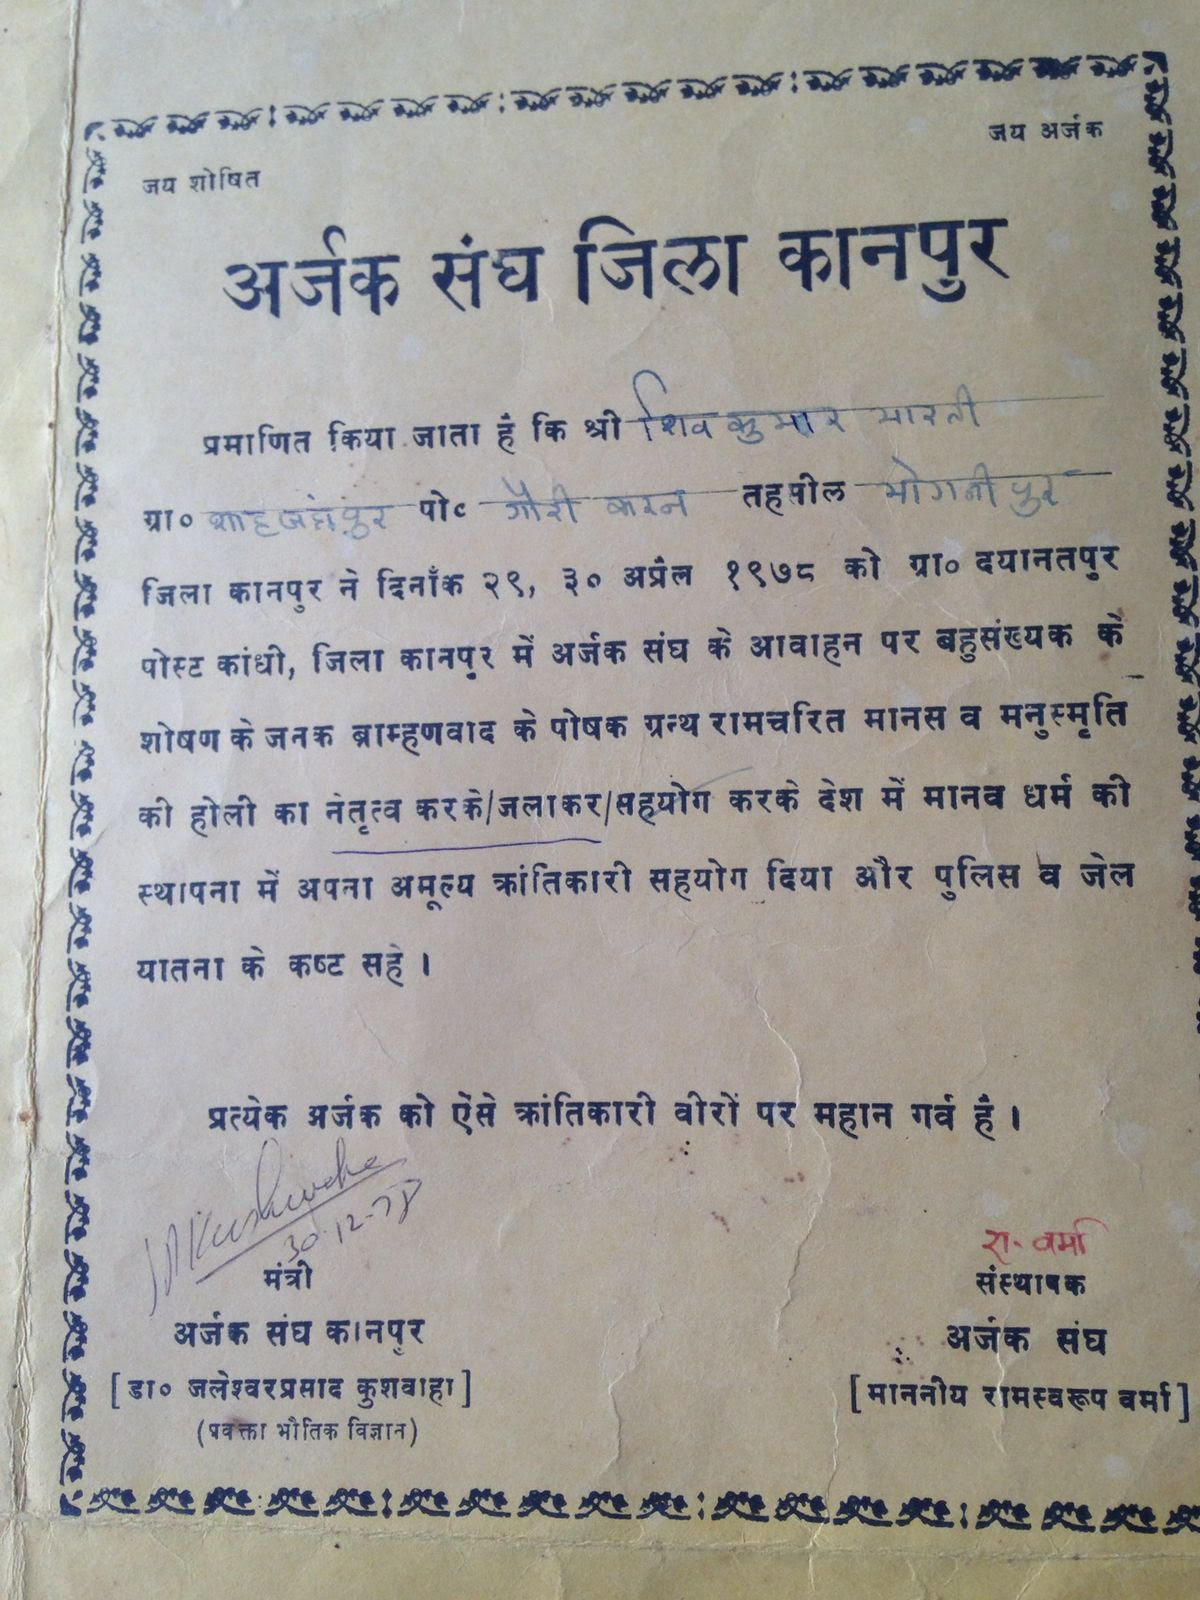 जय अर्जक
जय शोषित
अर्जक संघ जिला कानपुर
प्रमाणित किया जाता है कि श्री शिव कुमार भारती
ग्रा० शाहजहांपुर पो० गौरी करन तहसील भोगनीपुर
जिला कानपुर ने दिनाँक २९, ३० अप्रैल १९७८ को ग्रा० दयानतपुर
पोस्ट कांधी, जिला कानपुर में अर्जक संघ के आवाहन पर बहुसंख्यक के
शोषण के जनक ब्राम्हणवाद के पोषक ग्रन्थ रामचरित मानस व मनुस्मृति
की होली का नेतृत्व करके/जलाकर/सहयोग करके देश में मानव धर्म की
स्थापना में अपना अमूल्य क्रांतिकारी सहयोग दिया और पुलिस व जेल
यातना के कष्ट सहे ।
प्रत्येक अर्जक को ऐसे क्रांतिकारी वीरों पर महान गर्व है ।
Kushwaha
30-12-78
रा. वर्मा
मंत्री
संस्थापक
अर्जक संघ कानपुर
अर्जक संघ
[डा० जलेश्वरप्रसाद कुशवाहा]
[माननीय रामस्वरूप वर्मा]
(प्रवक्ता भौतिक विज्ञान)